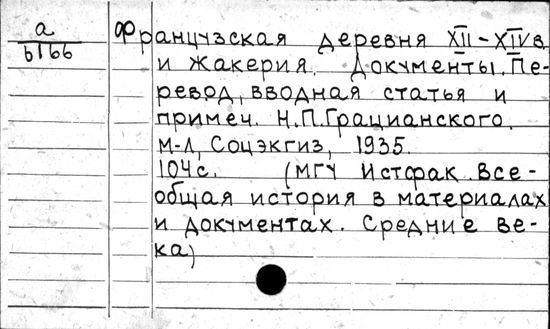 а
6166
Французская деревня XII-XIVв
и Жакерия. Документы. Пе-
ревод, вводная статья и
примеч. Н.П.Грацианского.
М-Л, Соцэкгиз, 1935.
104с. (МГУ Истфак. Все-
общая история в материалах
и документах. Средние ве-
ка)